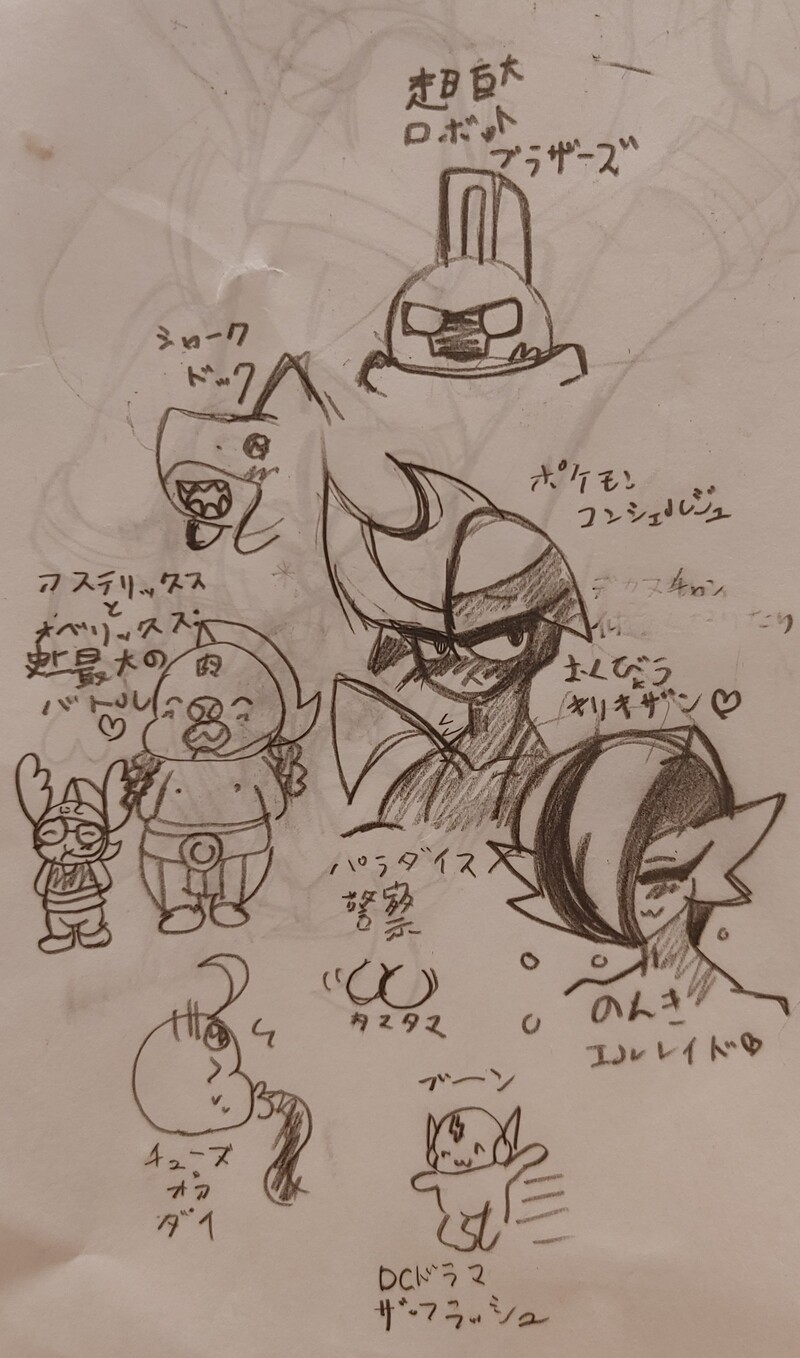 超巨大
ロボット
ブラザーズ
シャーク
ドック
ポケモン
コンシェルジュ
アステリックス
と
オベリックス:
史上最大の
バトル♡
肉
おくびょう
キリキザン♡
パラダイス
警察
タスタス
のんき
エルレイド♡
ブーン
チューズ
オア
ダイ
DCドラマ
ザ・フラッシュ